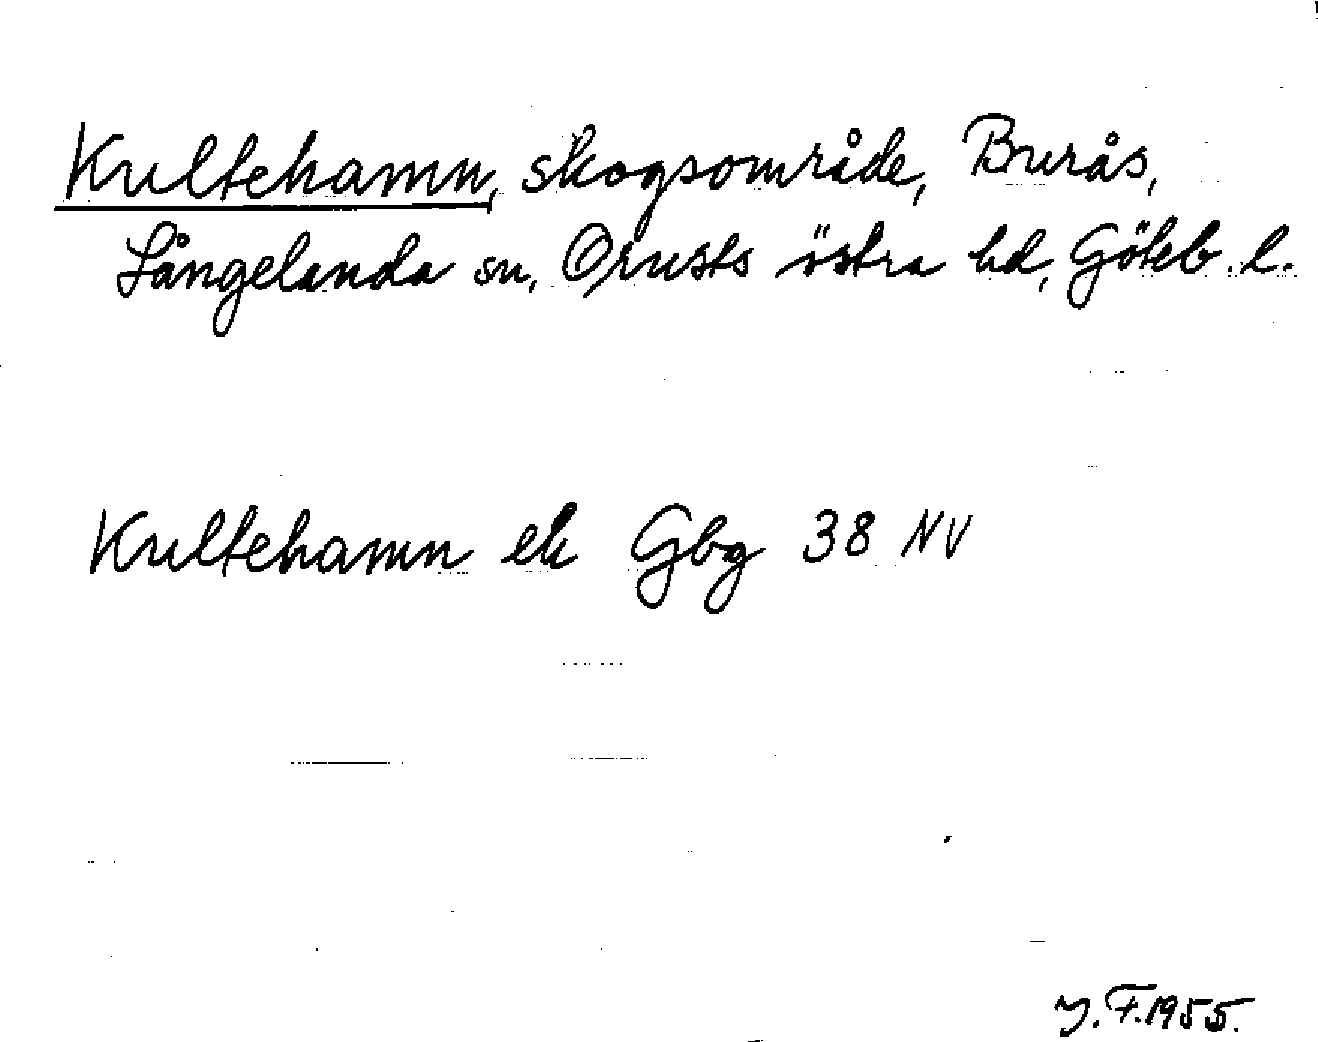 Kultehamn, skogsområde, Burås,
Långelanda sn, Orusts östra hd, Göteb. l.
Kultehamn ek Gbg 38 NV
Y. F. 1955.